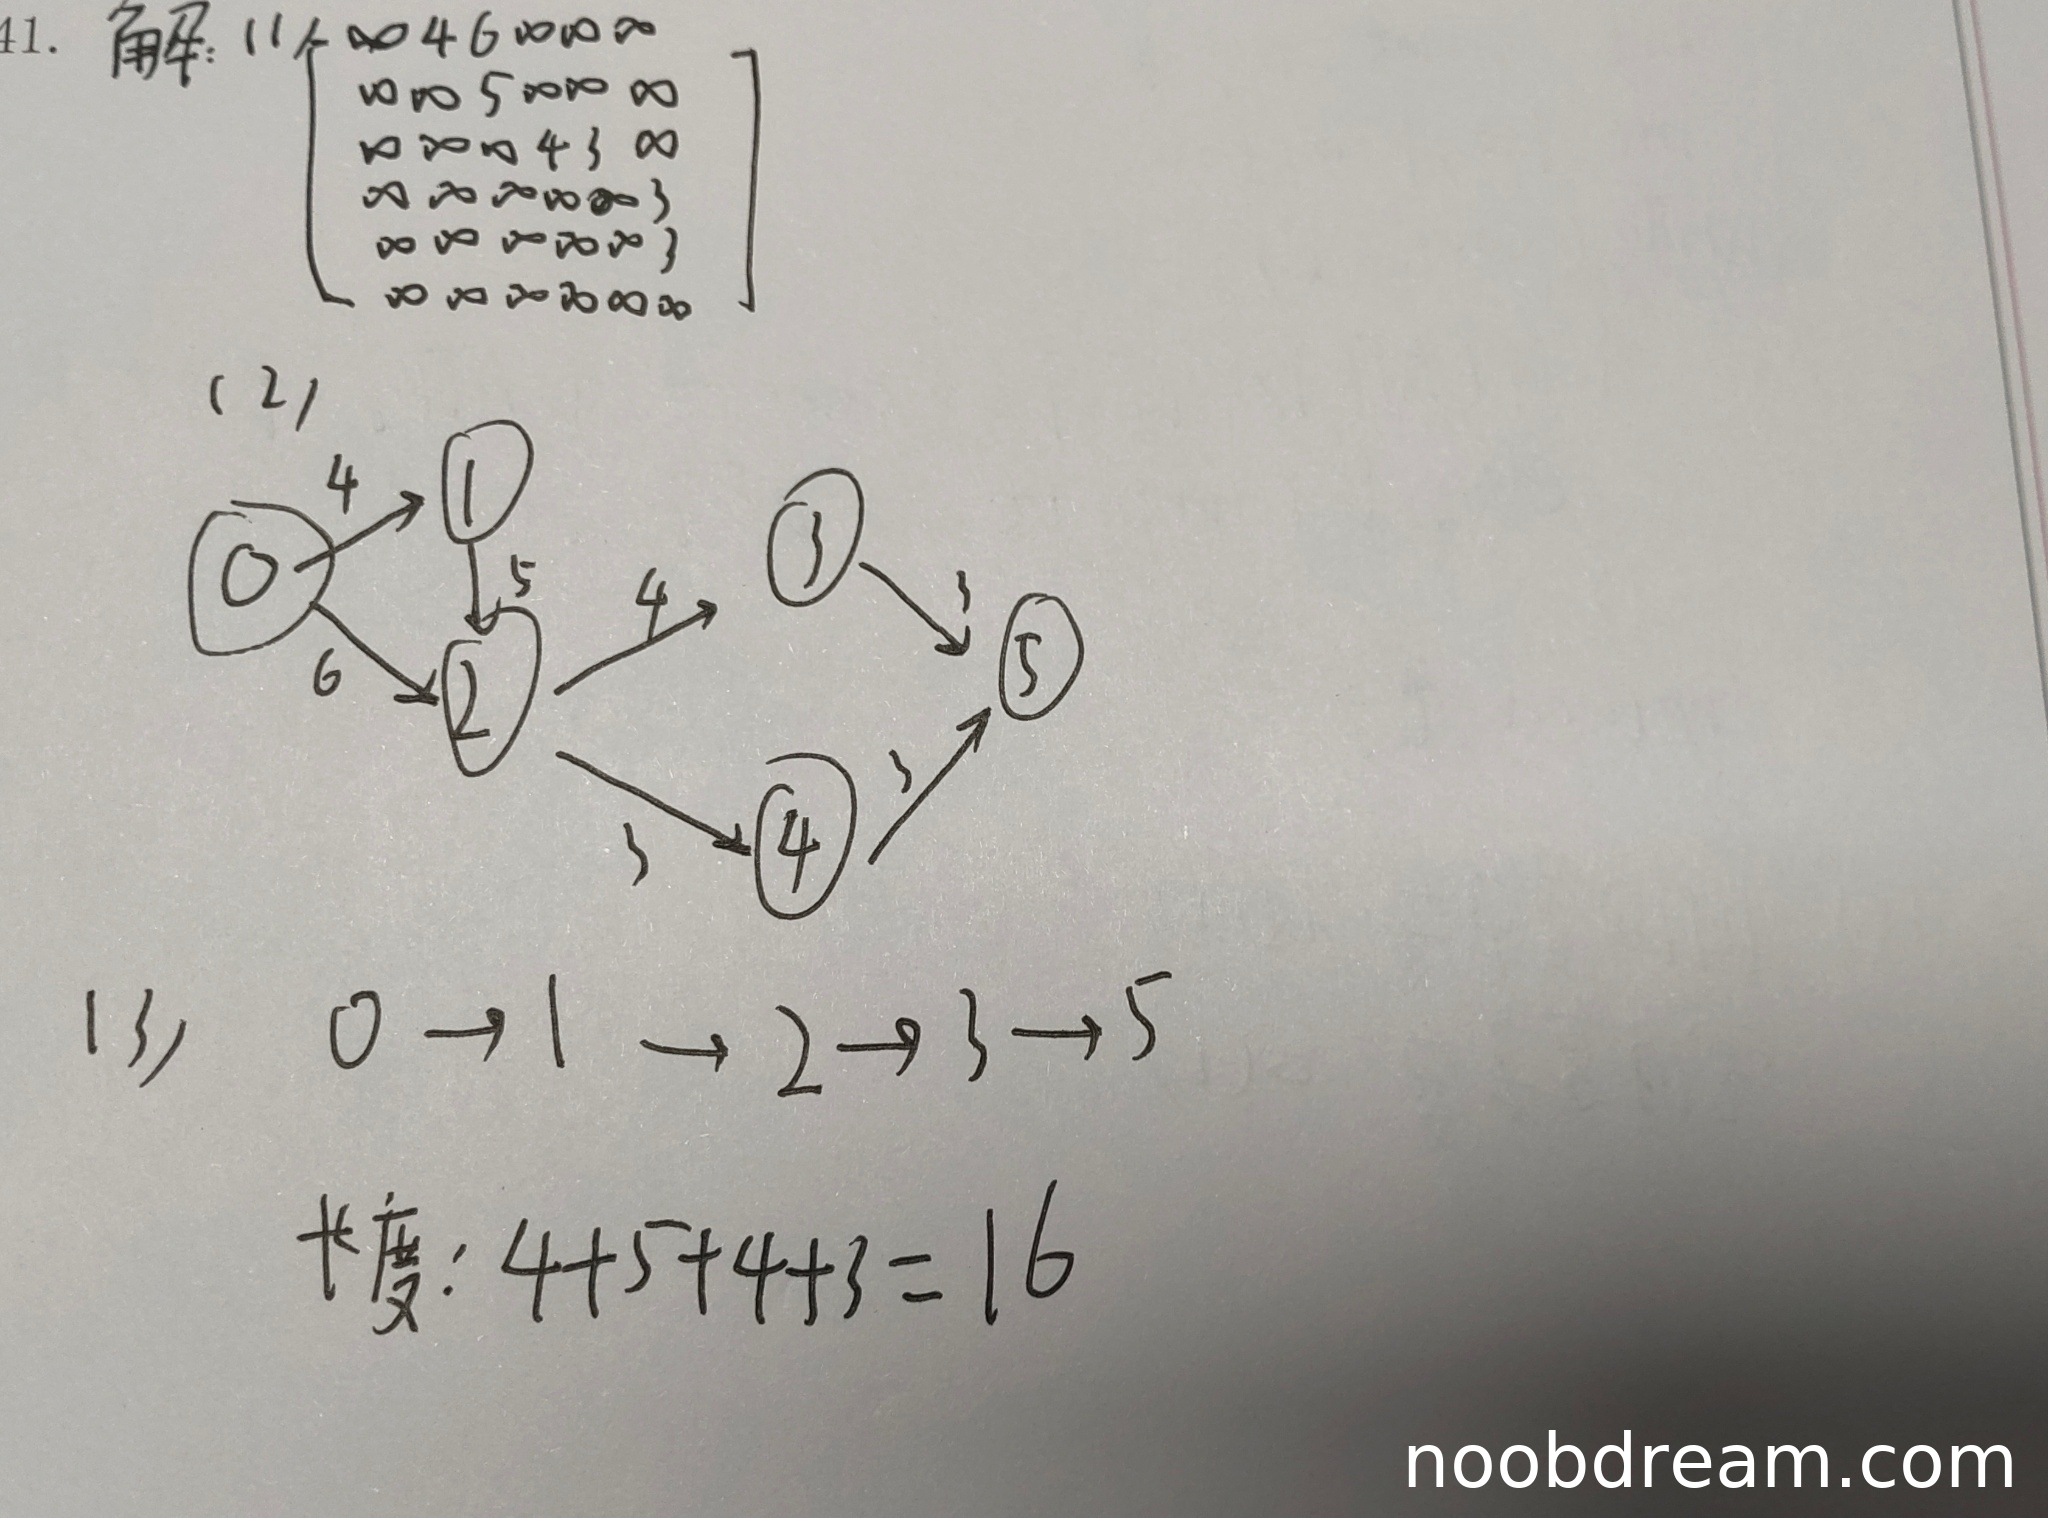 41. 解: (1) ∞ 4 6 ∞ ∞ ∞
∞ ∞ 5 ∞ ∞ ∞
∞ ∞ ∞ 4 3 ∞
∞ ∞ ∞ ∞ ∞ 3
∞ ∞ ∞ ∞ ∞ 3
∞ ∞ ∞ ∞ ∞ ∞
(2)
4 1
0 5 4 3 3
6 2 5
3 4 3
(3) 0 → 1 → 2 → 3 → 5
长度: 4+5+4+3=16
noobdream.com